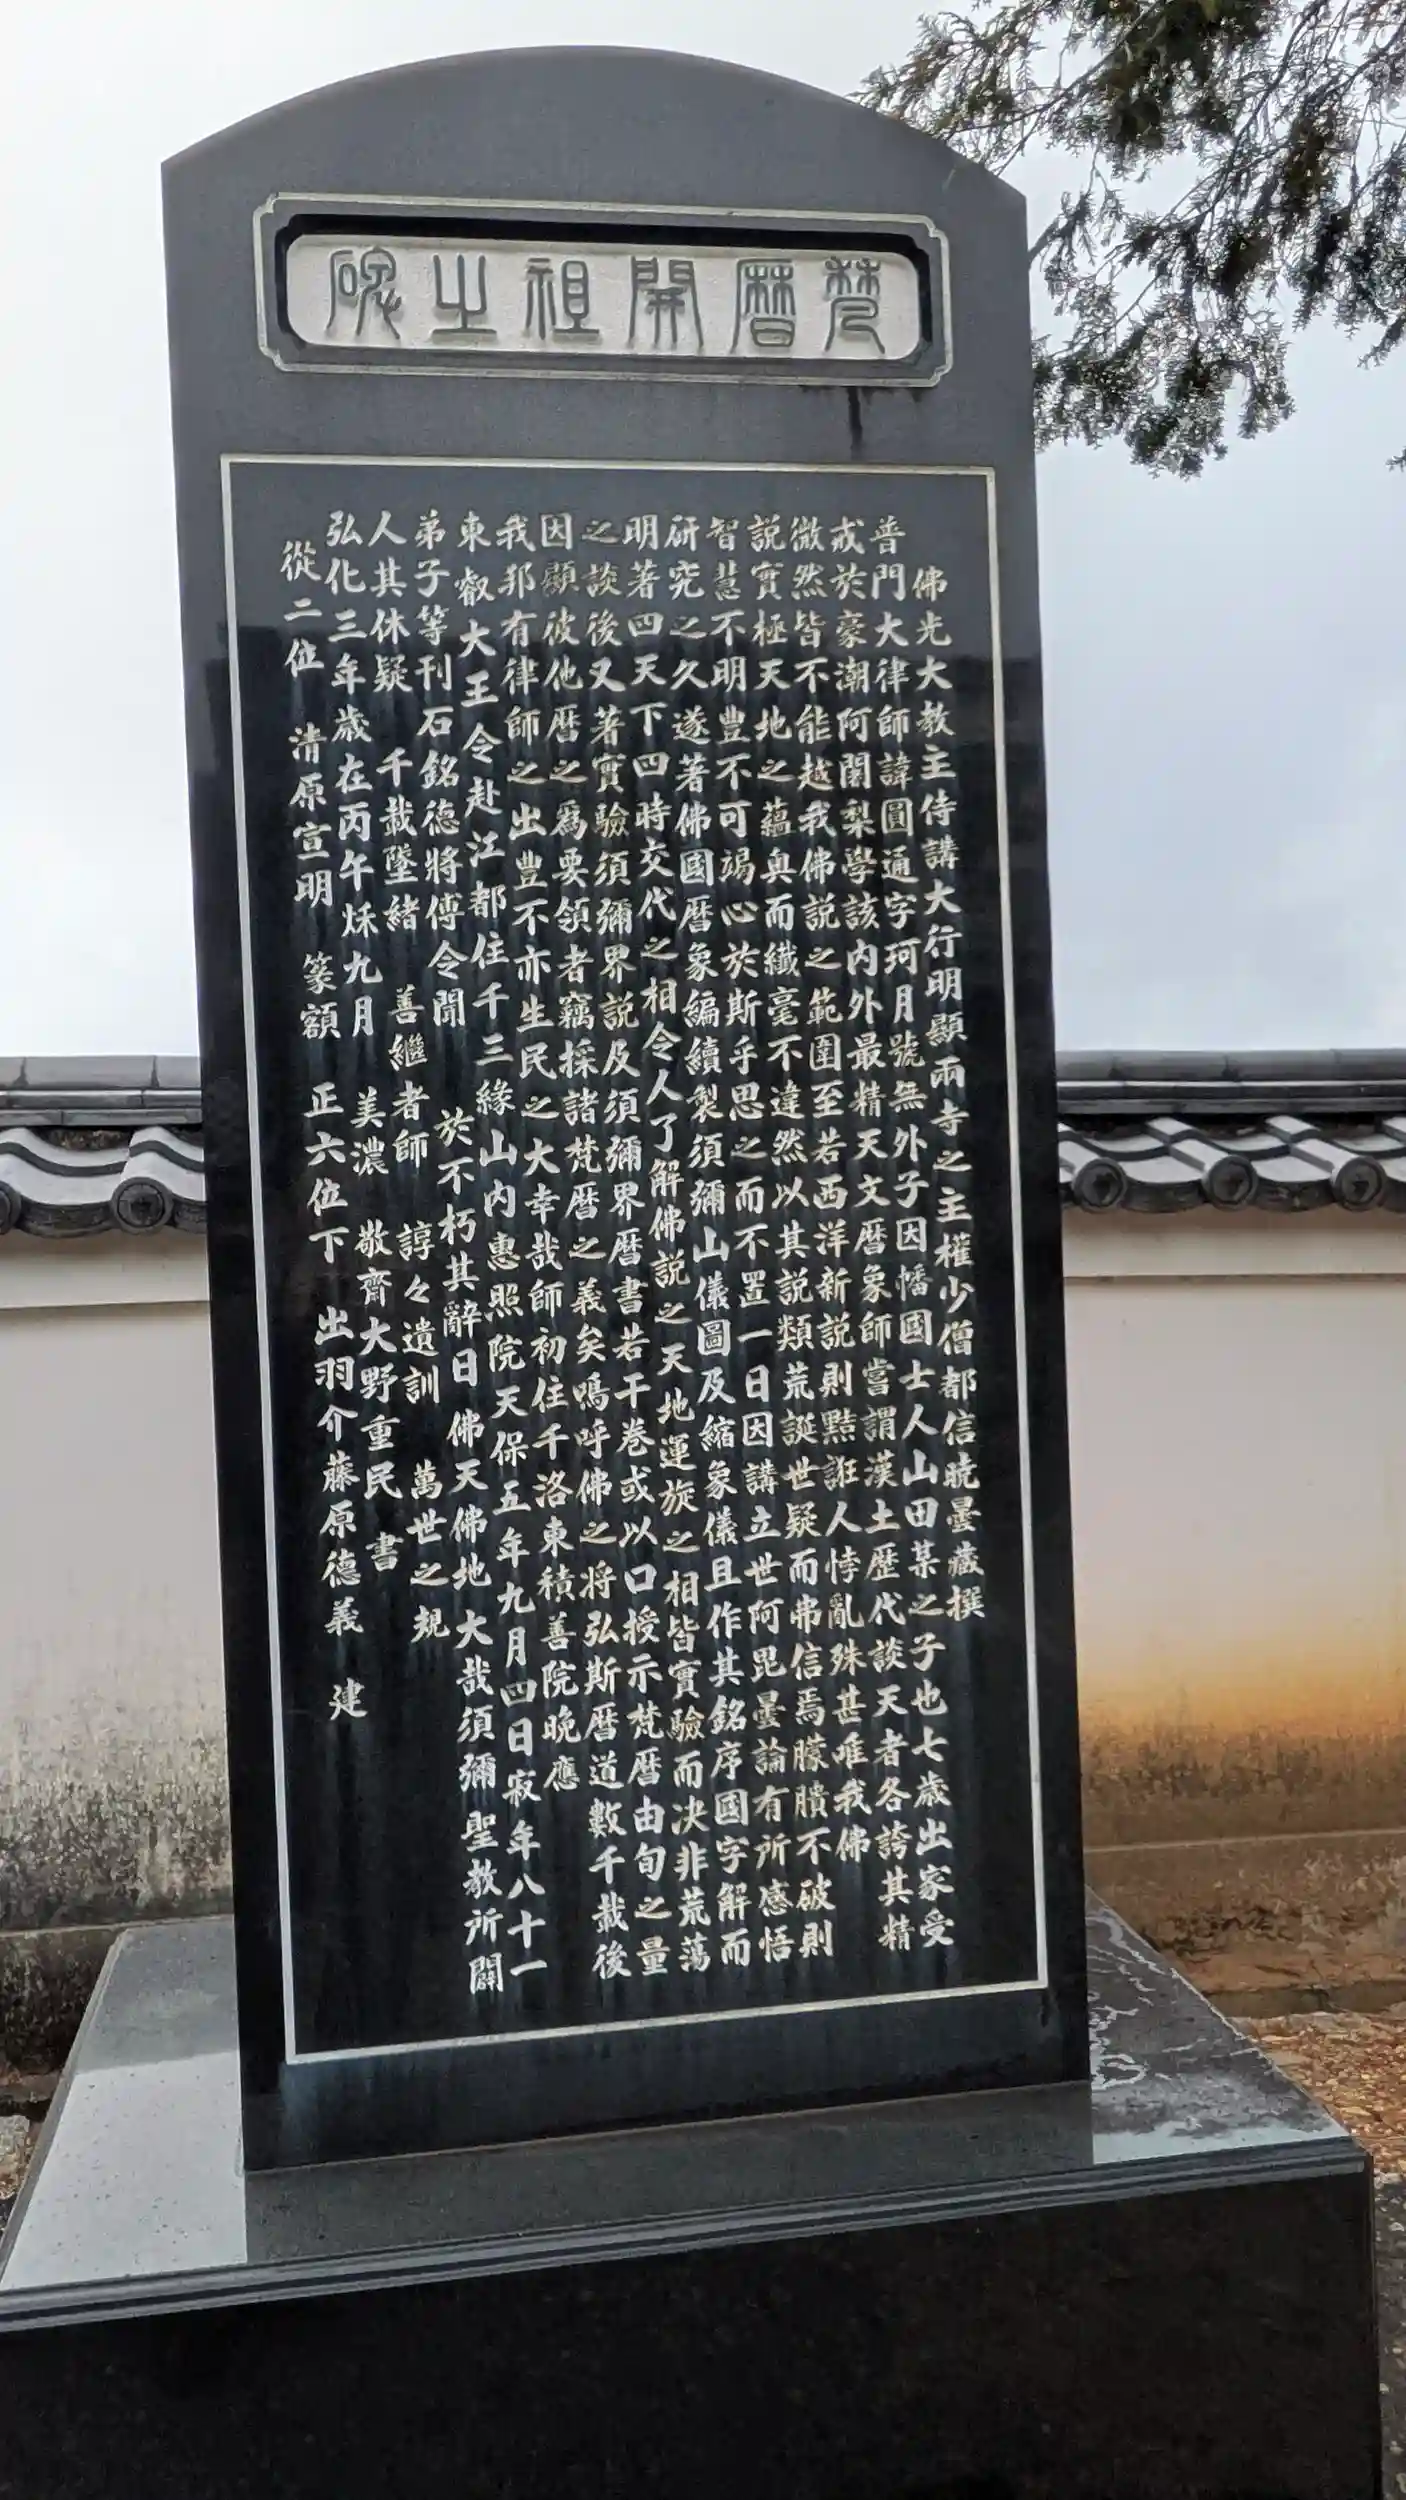 梵暦開祖之碑
佛光大教主侍講大行明顯兩寺之主權少僧都信暁曇藏撰
普門大律師諱圓通字珂月號無外子因幡國士人山田某之子也七歳出家受
戒於豪潮阿闍梨學該内外最精天文暦象師嘗謂漢土歴代談天者各誇其精
微然皆不能越我佛説之範圍至若西洋新説則黠誑人悖亂殊甚唯我佛
説實極天地之蘊奥而纖毫不違然以其説類荒誕世疑而弗信焉朦朣不破則
智慧不明豊不可竭心於斯乎思之而不置一日因講立世阿毘曇論有所感悟
研究之久遂著佛國暦象編續製須彌山儀圖及縮象儀且作其銘序國字解而
明著四天下四時交代之相令人了解佛説之天地運旋之相皆實驗而决非荒蕩
之談後又著實驗須彌界説及須彌界暦書若干巻或以口授示梵暦由旬之量
因顯彼他暦之爲要領者竊採諸梵暦之義矣嗚呼佛之将弘斯暦道數千載後
我邦有律師之出豊不亦生民之大幸哉師初住千洛東積善院晩應
東叡大王令赴江都住千三緣山内惠照院天保五年九月四日寂年八十一
弟子等刊石銘德將傳令聞於不朽其辭曰佛天佛地大哉須彌聖教所闢
人其休疑千載墜緒善繼者師諄々遺訓萬世之規
弘化三年歳在丙午秌九月美濃敬齊大野重民書
從二位清原宣明篆額正六位下出羽介藤原德義建